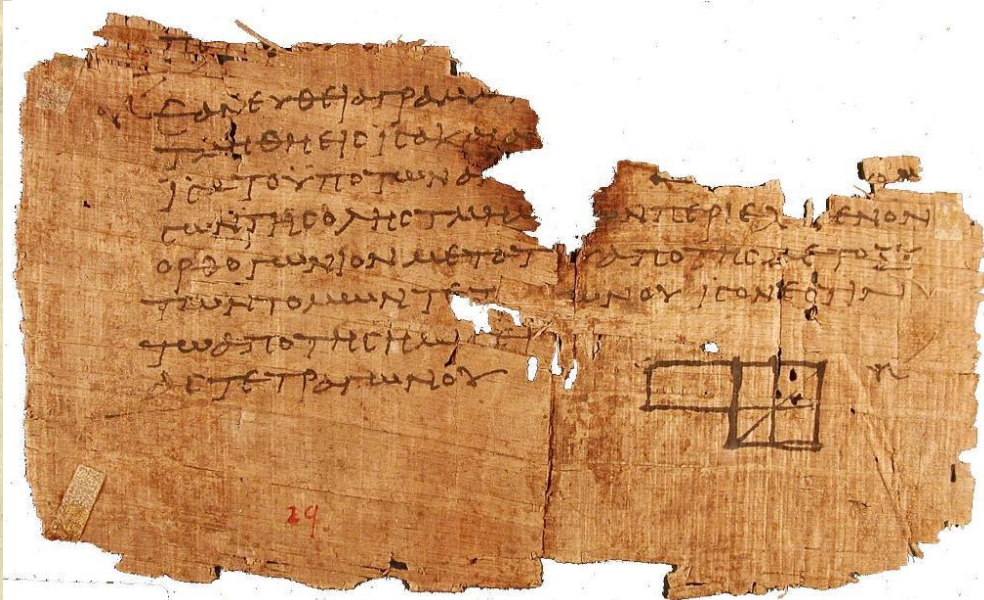 ΕΑΝΕΥΘΕΙΑΓΡΑΜ
ΤΜΗΘΗΕΙϹΙϹΑΚΑΙΑ
ΙϹΑΤΟΥΠΟΤΩΝΑ
ϹΩΝΤΗϹΟΛΗϹΤΜΗΜ ΩΝΠΕΡΙΕΧ ΜΕΝΟΝ
ΟΡΘΟΓΩΝΙΟΝΜΕΤΑΤ ΑΠΟΤΗϹΜΕΤΟΞΥ
ΤΩΝΤΟΜΩΝΤΕΤ ΩΝΟΥΙϹΟΝΕϹΤΙΝ
ΤΩΑΠΟΤΗϹΗΜΙϹΕΙ
ΑϹΤΕΤΡΑΓΩΝΟΥ
29